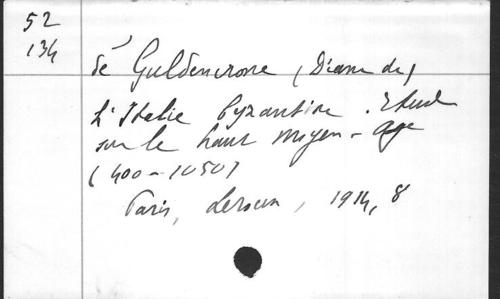 52
134
de Guldencrone (Diane de)
L'Italie byzantine. Etude
sur le haut moyen-age
(400-1050)
Paris, Leroux, 1914, 8